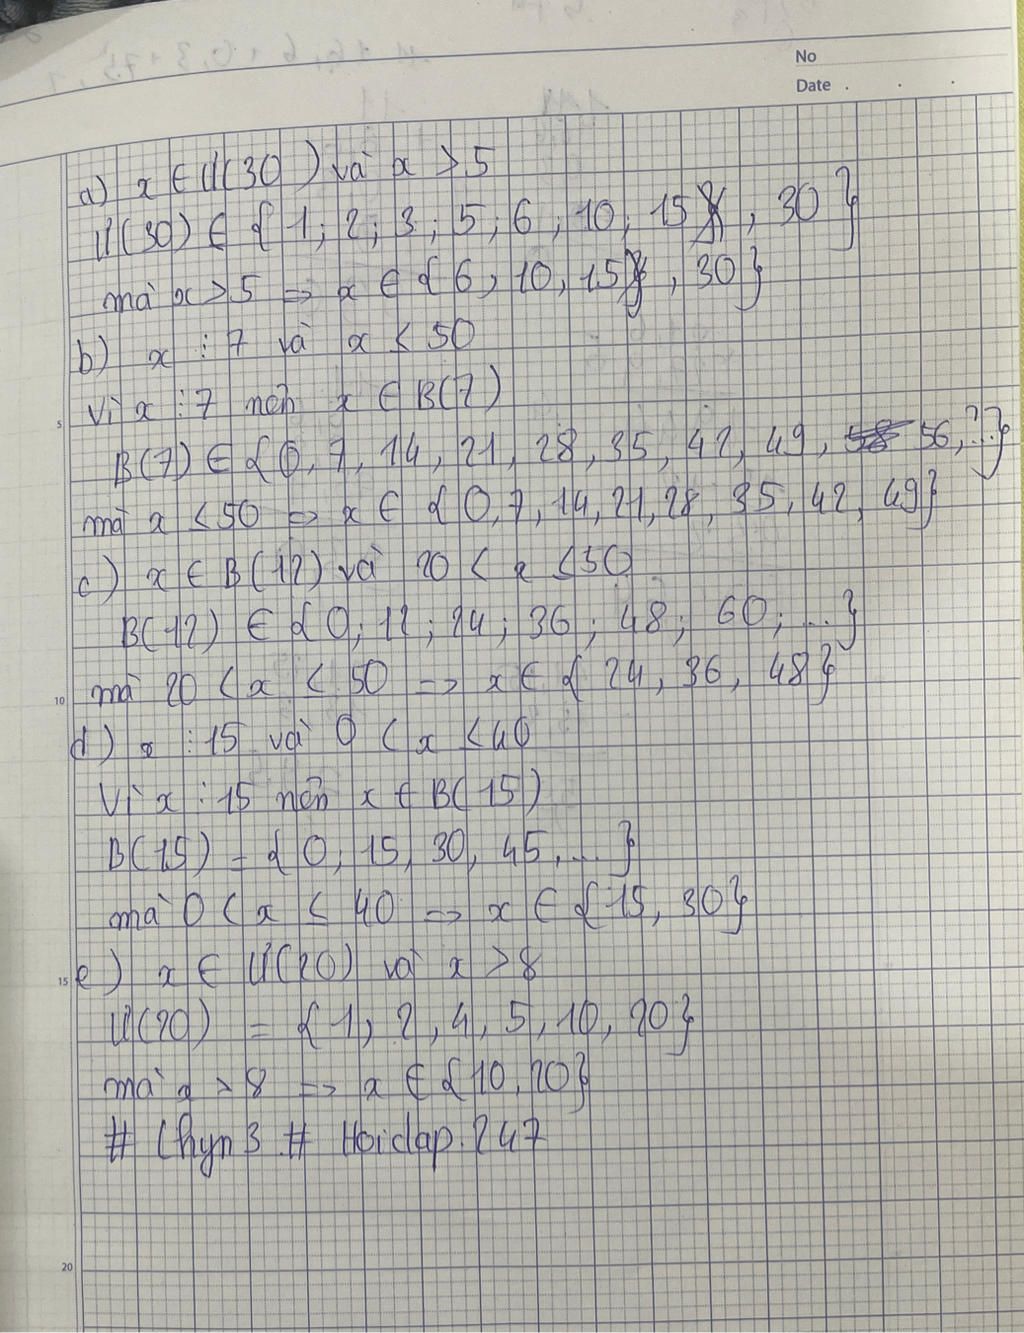 No
Date . . .
a) x ∈ Ư(30) và x > 5
Ư(30) ∈ { 1; 2; 3; 5; 6, 10, 15, 30 }
mà x > 5 => x ∈ { 6, 10, 15, 30 }
b) x ⋮ 7 và x < 50
5
Vì x ⋮ 7 nên x ∈ B(7)
B(7) ∈ { 0, 7, 14, 21, 28, 35, 42, 49, 56, ... }
mà x < 50 => x ∈ { 0, 7, 14, 21, 28, 35, 42, 49 }
c) x ∈ B(12) và 20 < x ≤ 50
B(12) ∈ { 0; 12; 24; 36; 48; 60; ... }
10
mà 20 < x ≤ 50 => x ∈ { 24, 36, 48 }
d) x ⋮ 15 và 0 < x ≤ 40
Vì x ⋮ 15 nên x ∈ B(15)
B(15) = { 0, 15, 30, 45, ... }
mà 0 < x ≤ 40 => x ∈ { 15, 30 }
15
e) x ∈ Ư(20) và x > 8
Ư(20) = { 1, 2, 4, 5, 10, 20 }
mà x > 8 => x ∈ { 10, 20 }
# Chyn3 # Hoidap.247
20